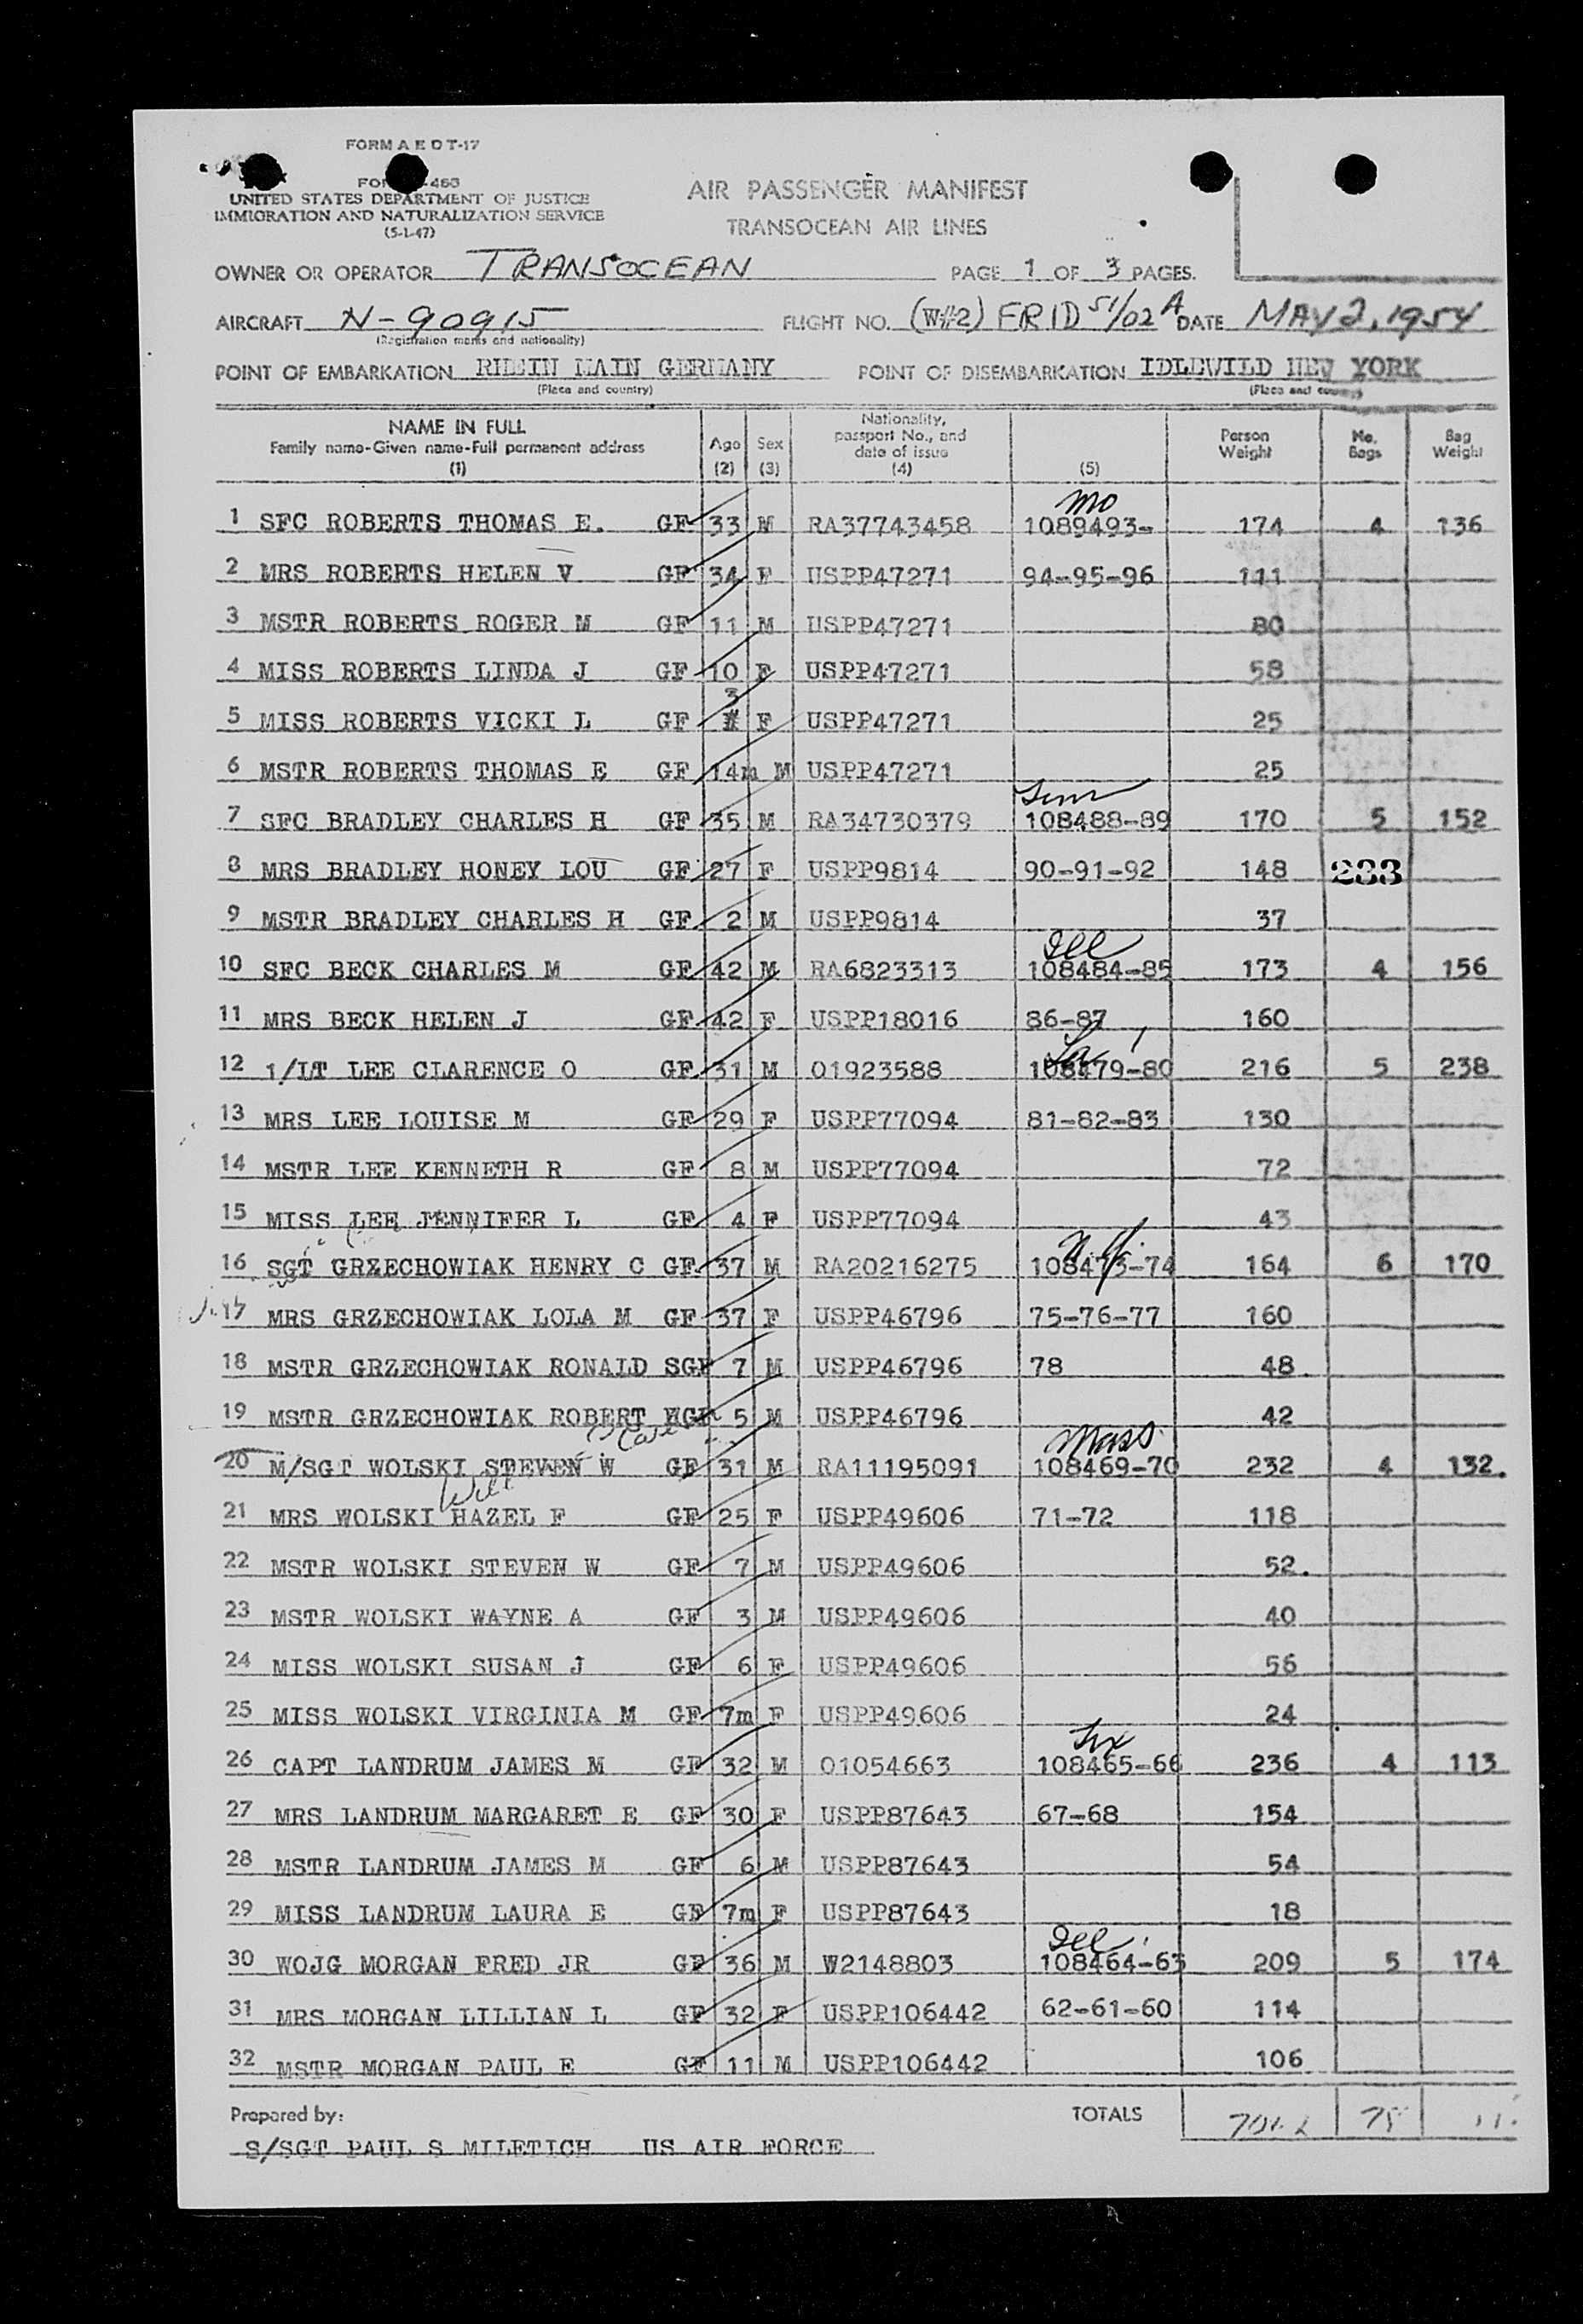 FORM A E D T-17
UNITED STATES DEPARTMENT OF JUSTICE
IMMIGRATION AND NATURALIZATION SERVICE
(5-1-47)
AIR PASSENGER MANIFEST
TRANSOCEAN AIR LINES
OWNER OR OPERATOR TRANSOCEAN PAGE 1 OF 3 PAGES.
AIRCRAFT N-90915 FLIGHT NO. (W#2) FRID 51/02 A DATE MAY 2, 1954
(Registration marks and nationality)
POINT OF EMBARKATION RHEIN MAIN GERMANY POINT OF DISEMBARKATION IDLEWILD NEW YORK
(Place and country) (Place and country)
NAME IN FULL Family name-Given name-Full permanent address (1) Age (2) Sex (3) Nationality, passport No., and date of issue (4) (5) Person Weight No. Bags Bag Weight
Mo
1 SFC ROBERTS THOMAS E. GF 33 M RA37743458 1089493- 174 4 136
2 MRS ROBERTS HELEN V GF 34 F USPP47271 94-95-96 111
3 MSTR ROBERTS ROGER M GF 11 M USPP47271 80
4 MISS ROBERTS LINDA J GF 10 F USPP47271 58
5 MISS ROBERTS VICKI L GF 3 F USPP47271 25
6 MSTR ROBERTS THOMAS E GF 14m M USPP47271 25
7 SFC BRADLEY CHARLES H GF 35 M RA34730379 108488-89 170 5 152
8 MRS BRADLEY HONEY LOU GF 27 F USPP9814 90-91-92 148 233
9 MSTR BRADLEY CHARLES H GF 2 M USPP9814 37
Ill
10 SFC BECK CHARLES M GF 42 M RA6823313 108484-85 173 4 156
11 MRS BECK HELEN J GF 42 F USPP18016 86-87 160
La
12 1/LT LEE CLARENCE O GF 31 M O1923588 108479-80 216 5 238
13 MRS LEE LOUISE M GF 29 F USPP77094 81-82-83 130
14 MSTR LEE KENNETH R GF 8 M USPP77094 72
15 MISS LEE JENNIFER L GF 4 F USPP77094 43
N.Y.
16 SGT GRZECHOWIAK HENRY C GF 37 M RA20216275 108473-74 164 6 170
17 MRS GRZECHOWIAK LOLA M GF 37 F USPP46796 75-76-77 160
18 MSTR GRZECHOWIAK RONALD SGF 7 M USPP46796 78 48
19 MSTR GRZECHOWIAK ROBERT WGF 5 M USPP46796 42
Mass.
20 M/SGT WOLSKI STEVEN W GF 31 M RA11195091 108469-70 232 4 132.
21 MRS WOLSKI HAZEL F GF 25 F USPP49606 71-72 118
22 MSTR WOLSKI STEVEN W GF 7 M USPP49606 52.
23 MSTR WOLSKI WAYNE A GF 3 M USPP49606 40
24 MISS WOLSKI SUSAN J GF 6 F USPP49606 56
25 MISS WOLSKI VIRGINIA M GF 7m F USPP49606 24
Tex
26 CAPT LANDRUM JAMES M GF 32 M O1054663 108465-66 236 4 113
27 MRS LANDRUM MARGARET E GF 30 F USPP87643 67-68 154
28 MSTR LANDRUM JAMES M GF 6 M USPP87643 54
29 MISS LANDRUM LAURA E GF 7m F USPP87643 18
Ill
30 WOJG MORGAN FRED JR GF 36 M W2148803 108464-63 209 5 174
31 MRS MORGAN LILLIAN L GF 32 F USPP106442 62-61-60 114
32 MSTR MORGAN PAUL E GF 11 M USPP106442 106
Prepared by: TOTALS
S/SGT PAUL S MILETICH US AIR FORCE